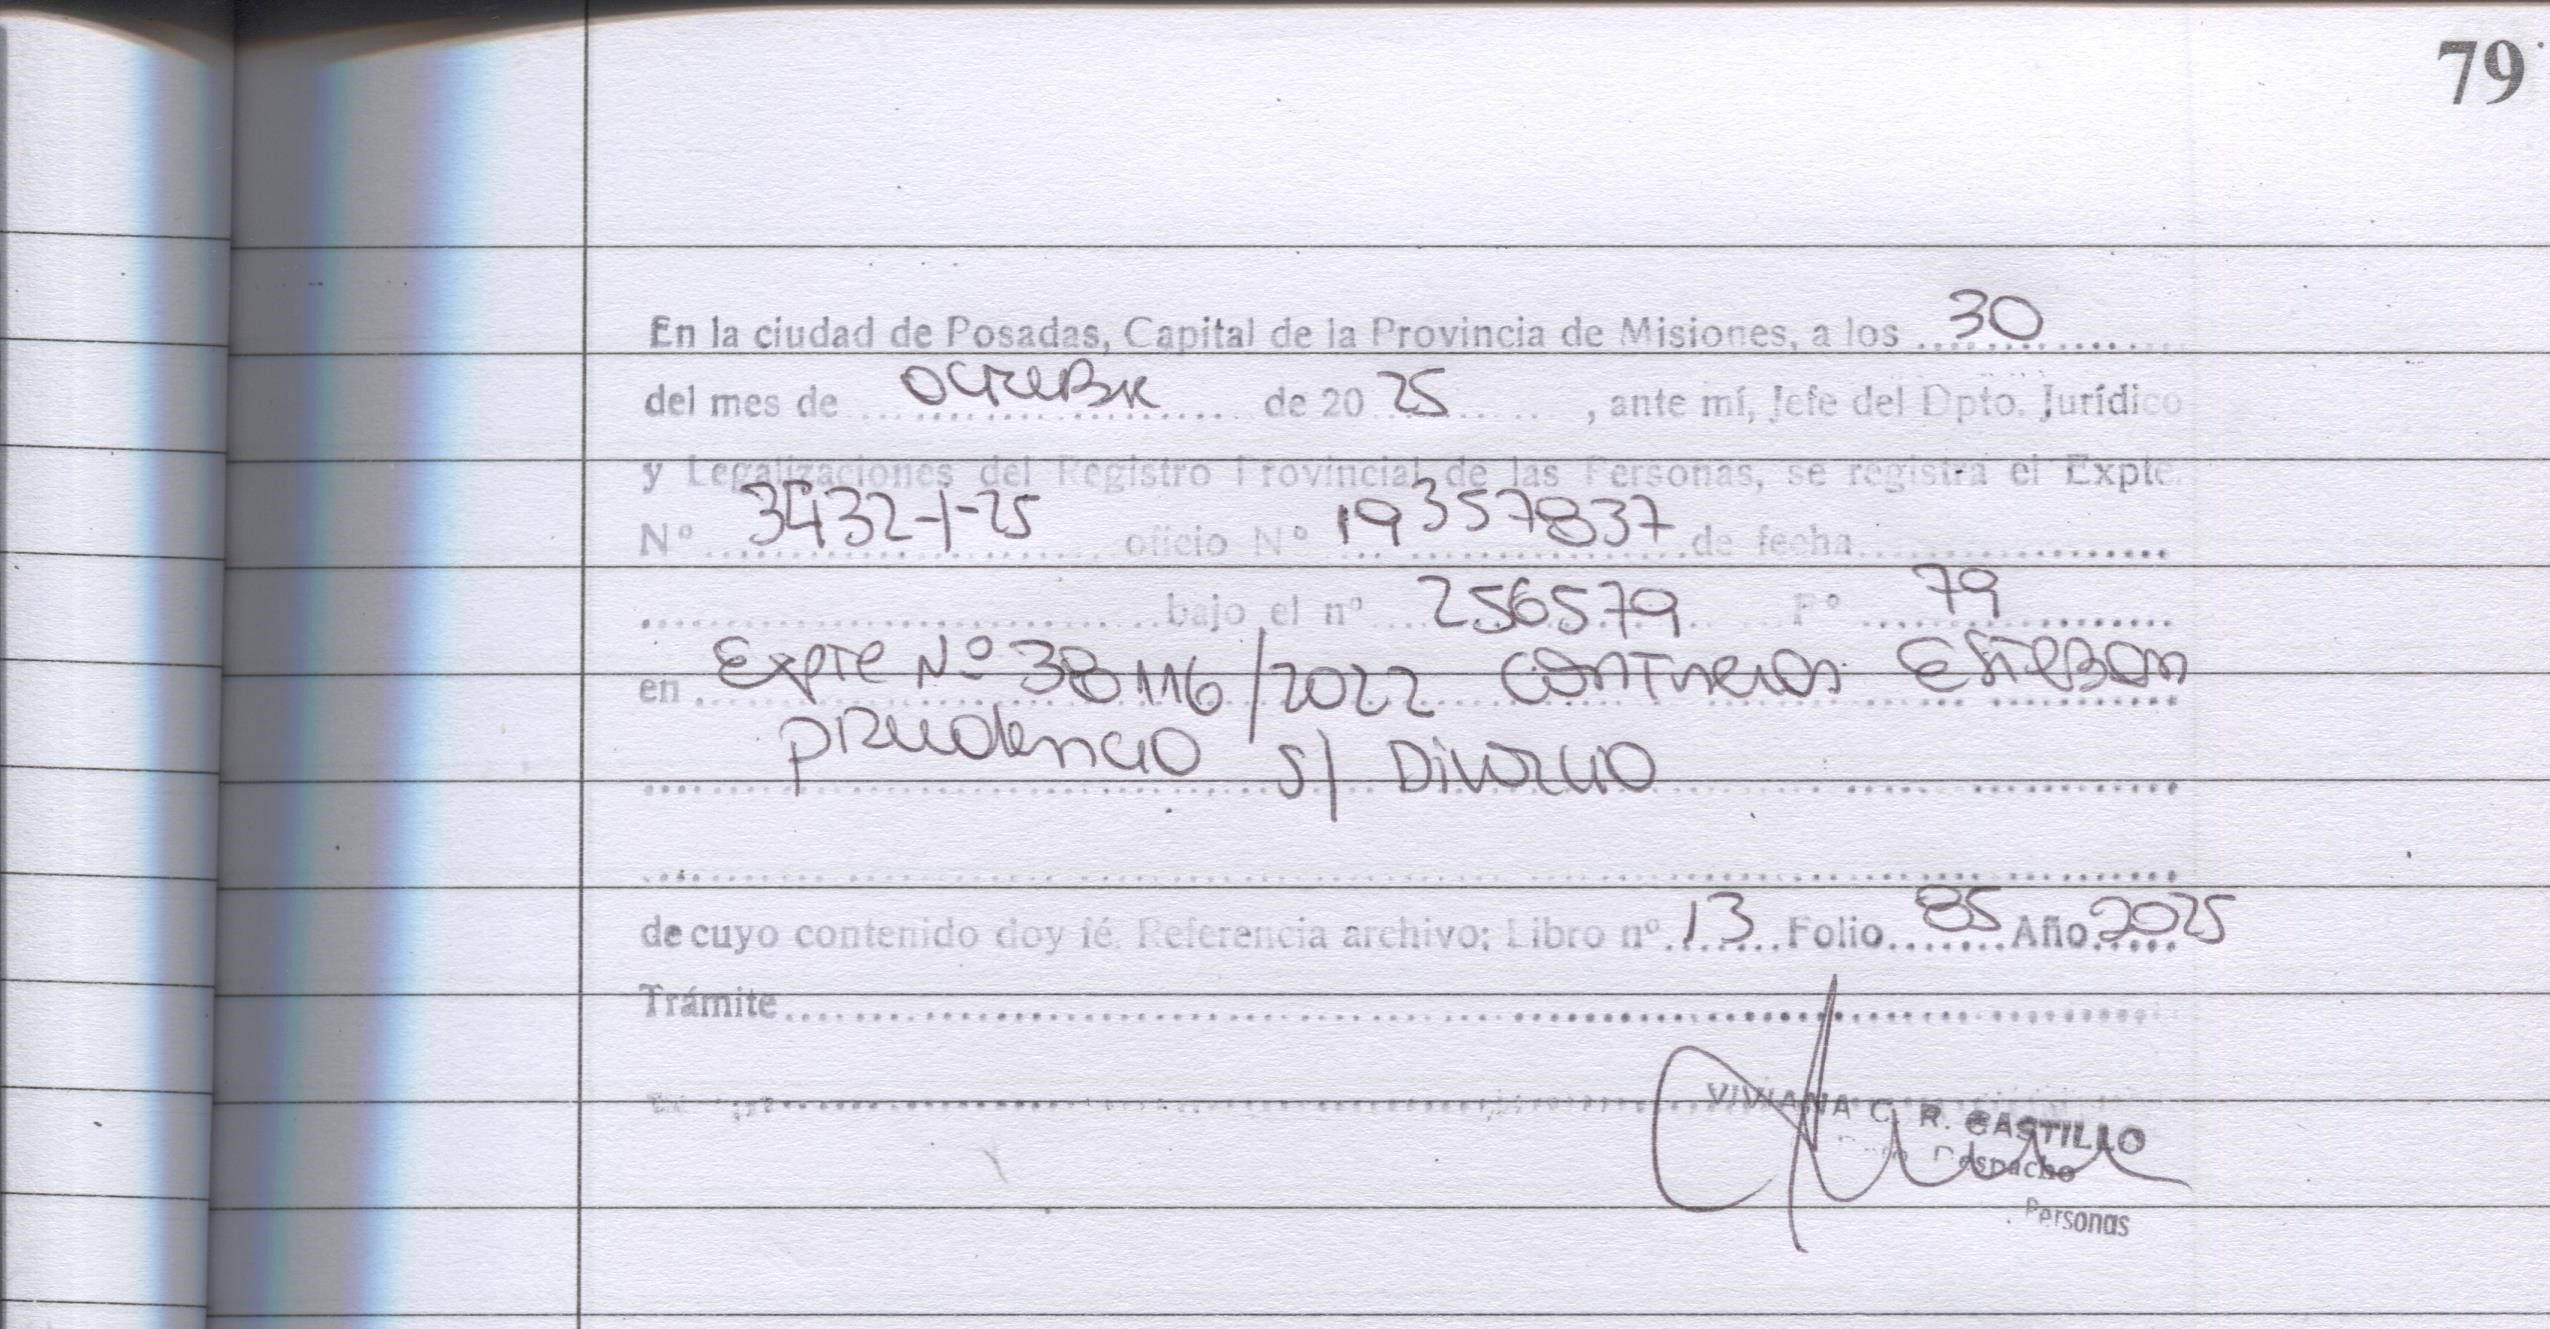 79
En la ciudad de Posadas, Capital de la Provincia de Misiones, a los 30
del mes de octubre de 20 25, ante mí, Jefe del Dpto. Jurídico
y Legalizaciones del Registro Provincial de las Personas, se registra el Expte.
Nº 3432-1-25 oficio Nº 19357837 de fecha
bajo el nº 256579 Fº 79
en Expte Nº 38116/2022 Contreras Esteban
Prudencio S/ Divorcio
de cuyo contenido doy fé. Referencia archivo: Libro nº 13 Folio 85 Año 2025
Trámite
VIVIANA C. R. CASTILLO
Despacho
Personas